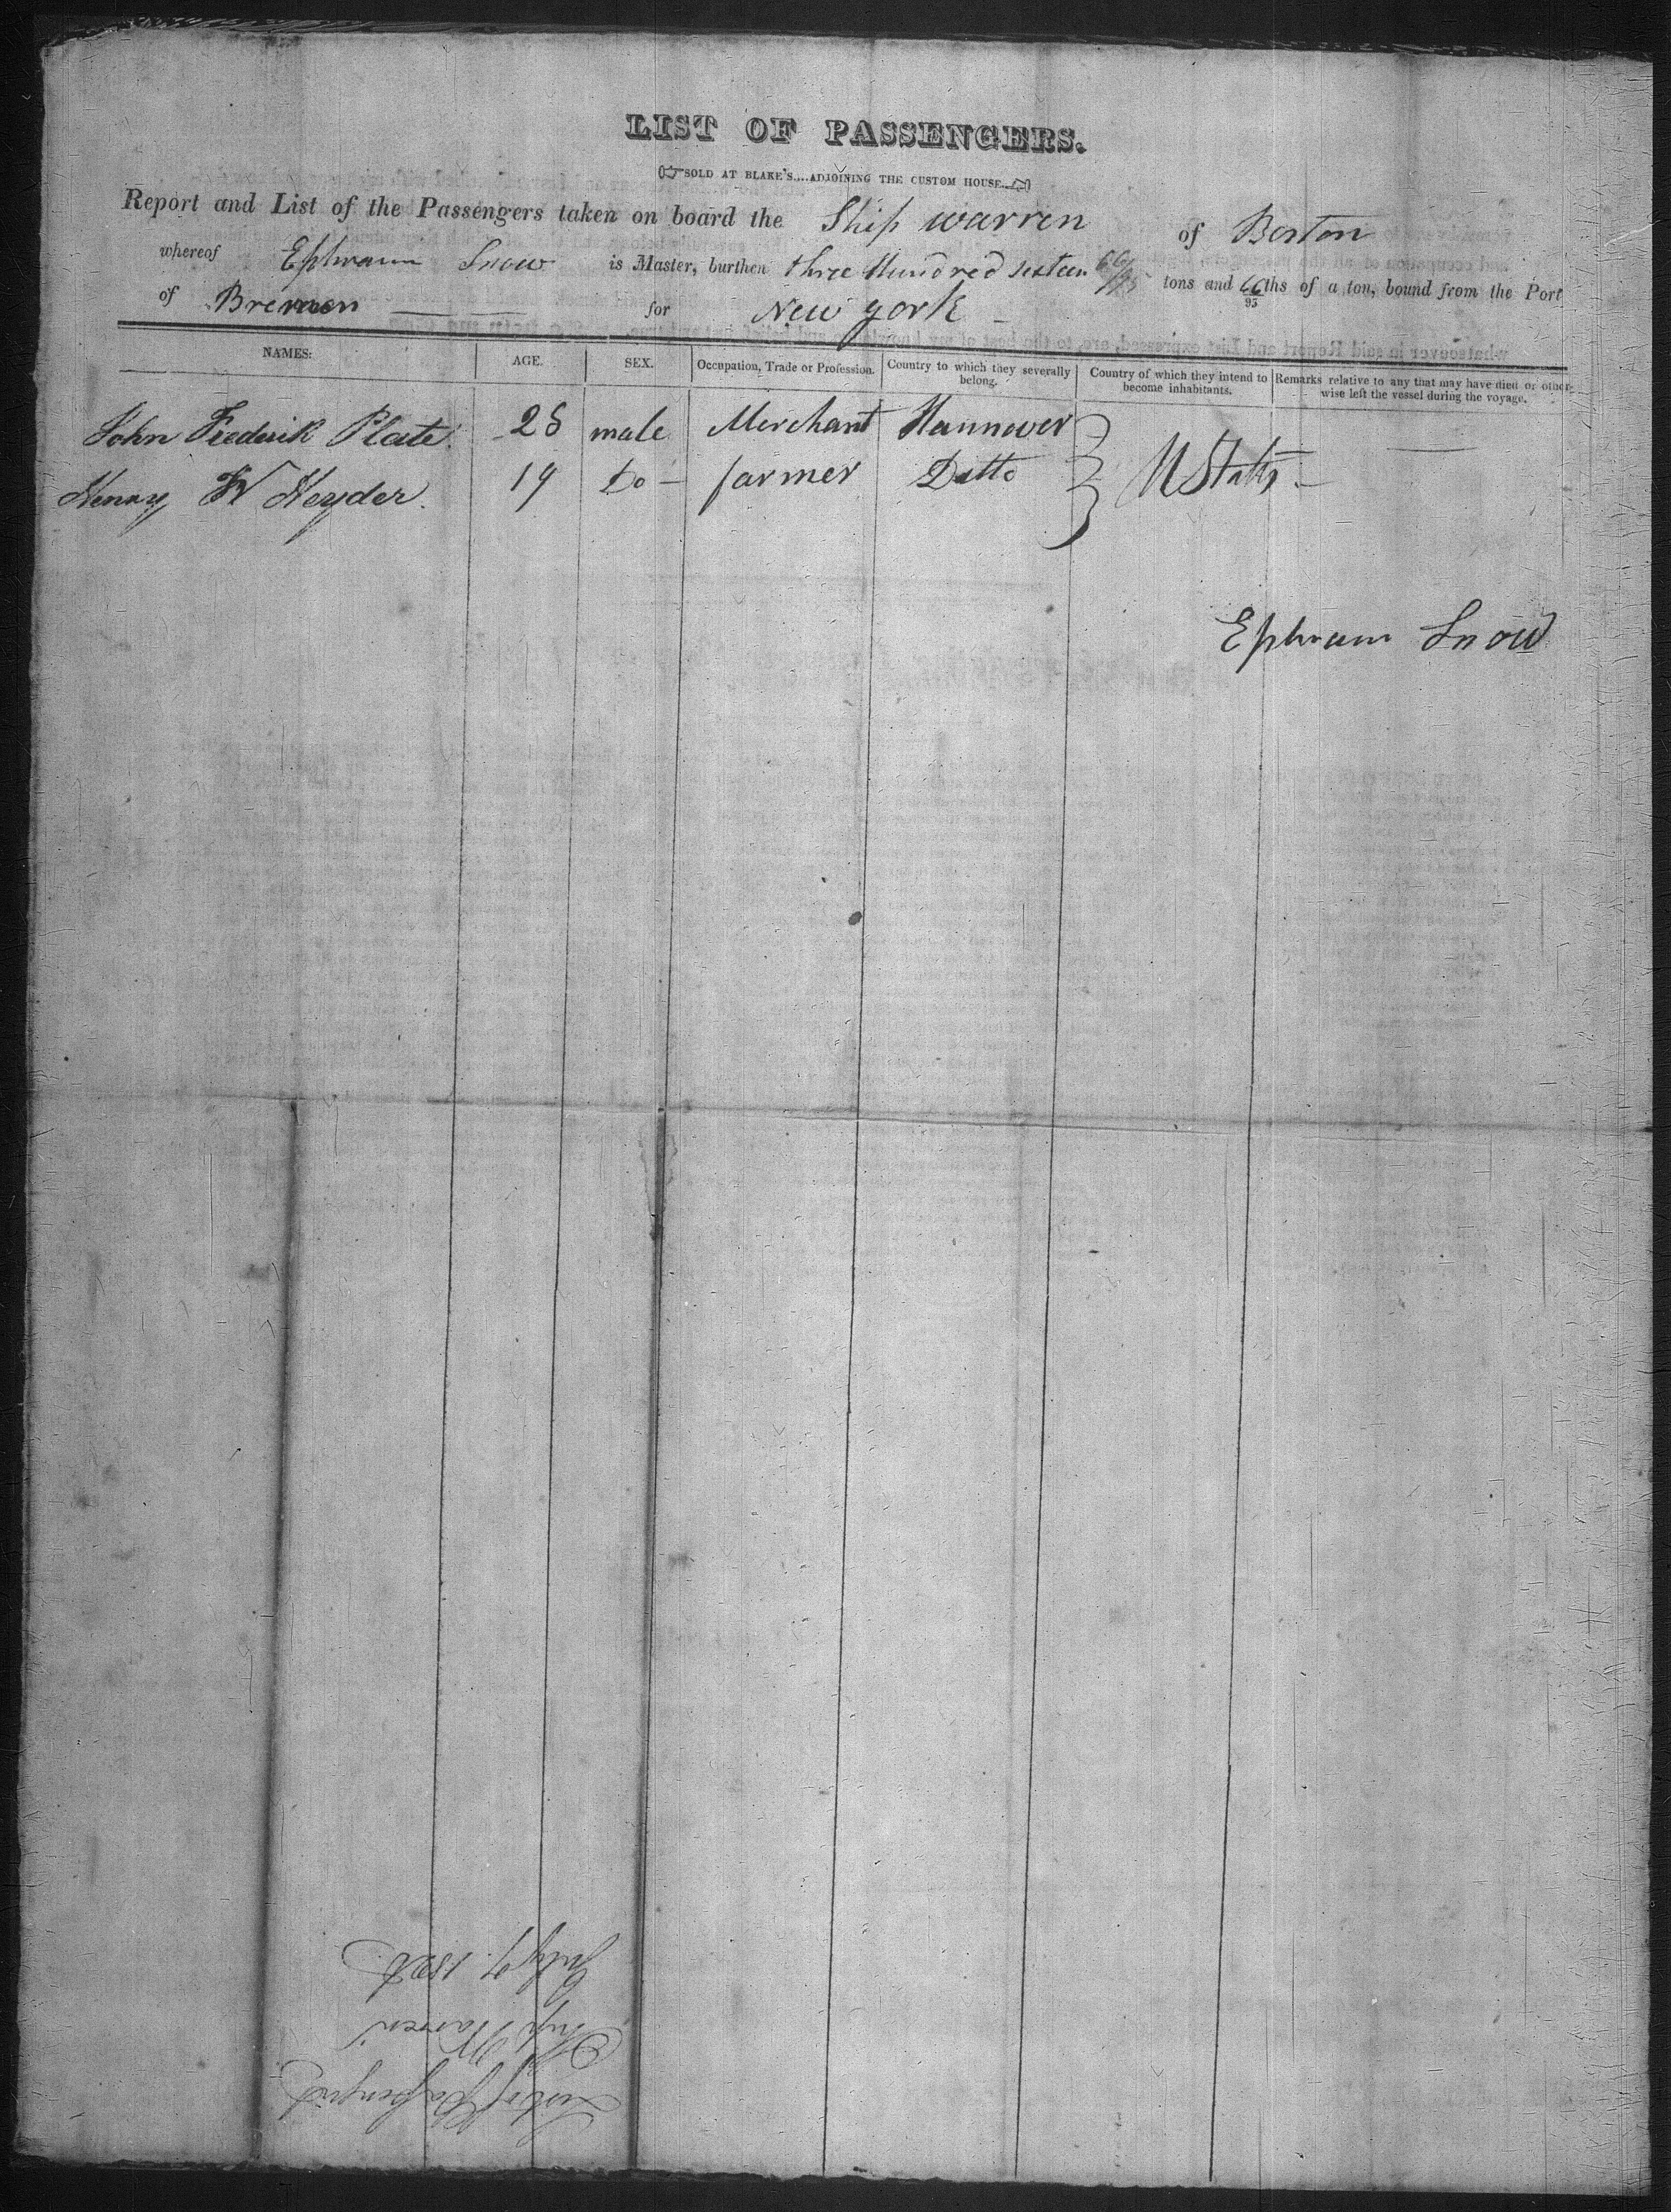 LIST OF PASSENGERS.
SOLD AT BLAKE'S....ADJOINING THE CUSTOM HOUSE.
Report and List of the Passengers taken on board the Ship Warren of Boston
whereof Ephraim Snow is Master, burthen three Hundred sixteen 66/95 tons and 66/95 ths of a ton, bound from the Port
of Bremen for New york
NAMES. AGE. SEX. Occupation, Trade or Profession. Country to which they severally belong. Country of which they intend to become inhabitants. Remarks relative to any that may have died or otherwise left the vessel during the voyage.
John Frederik Plate 28 male Merchant Hannover
Henry W Heyder 19 Do farmer Ditto U States
Ephraim Snow
List of Passengers
Ship Warren
July